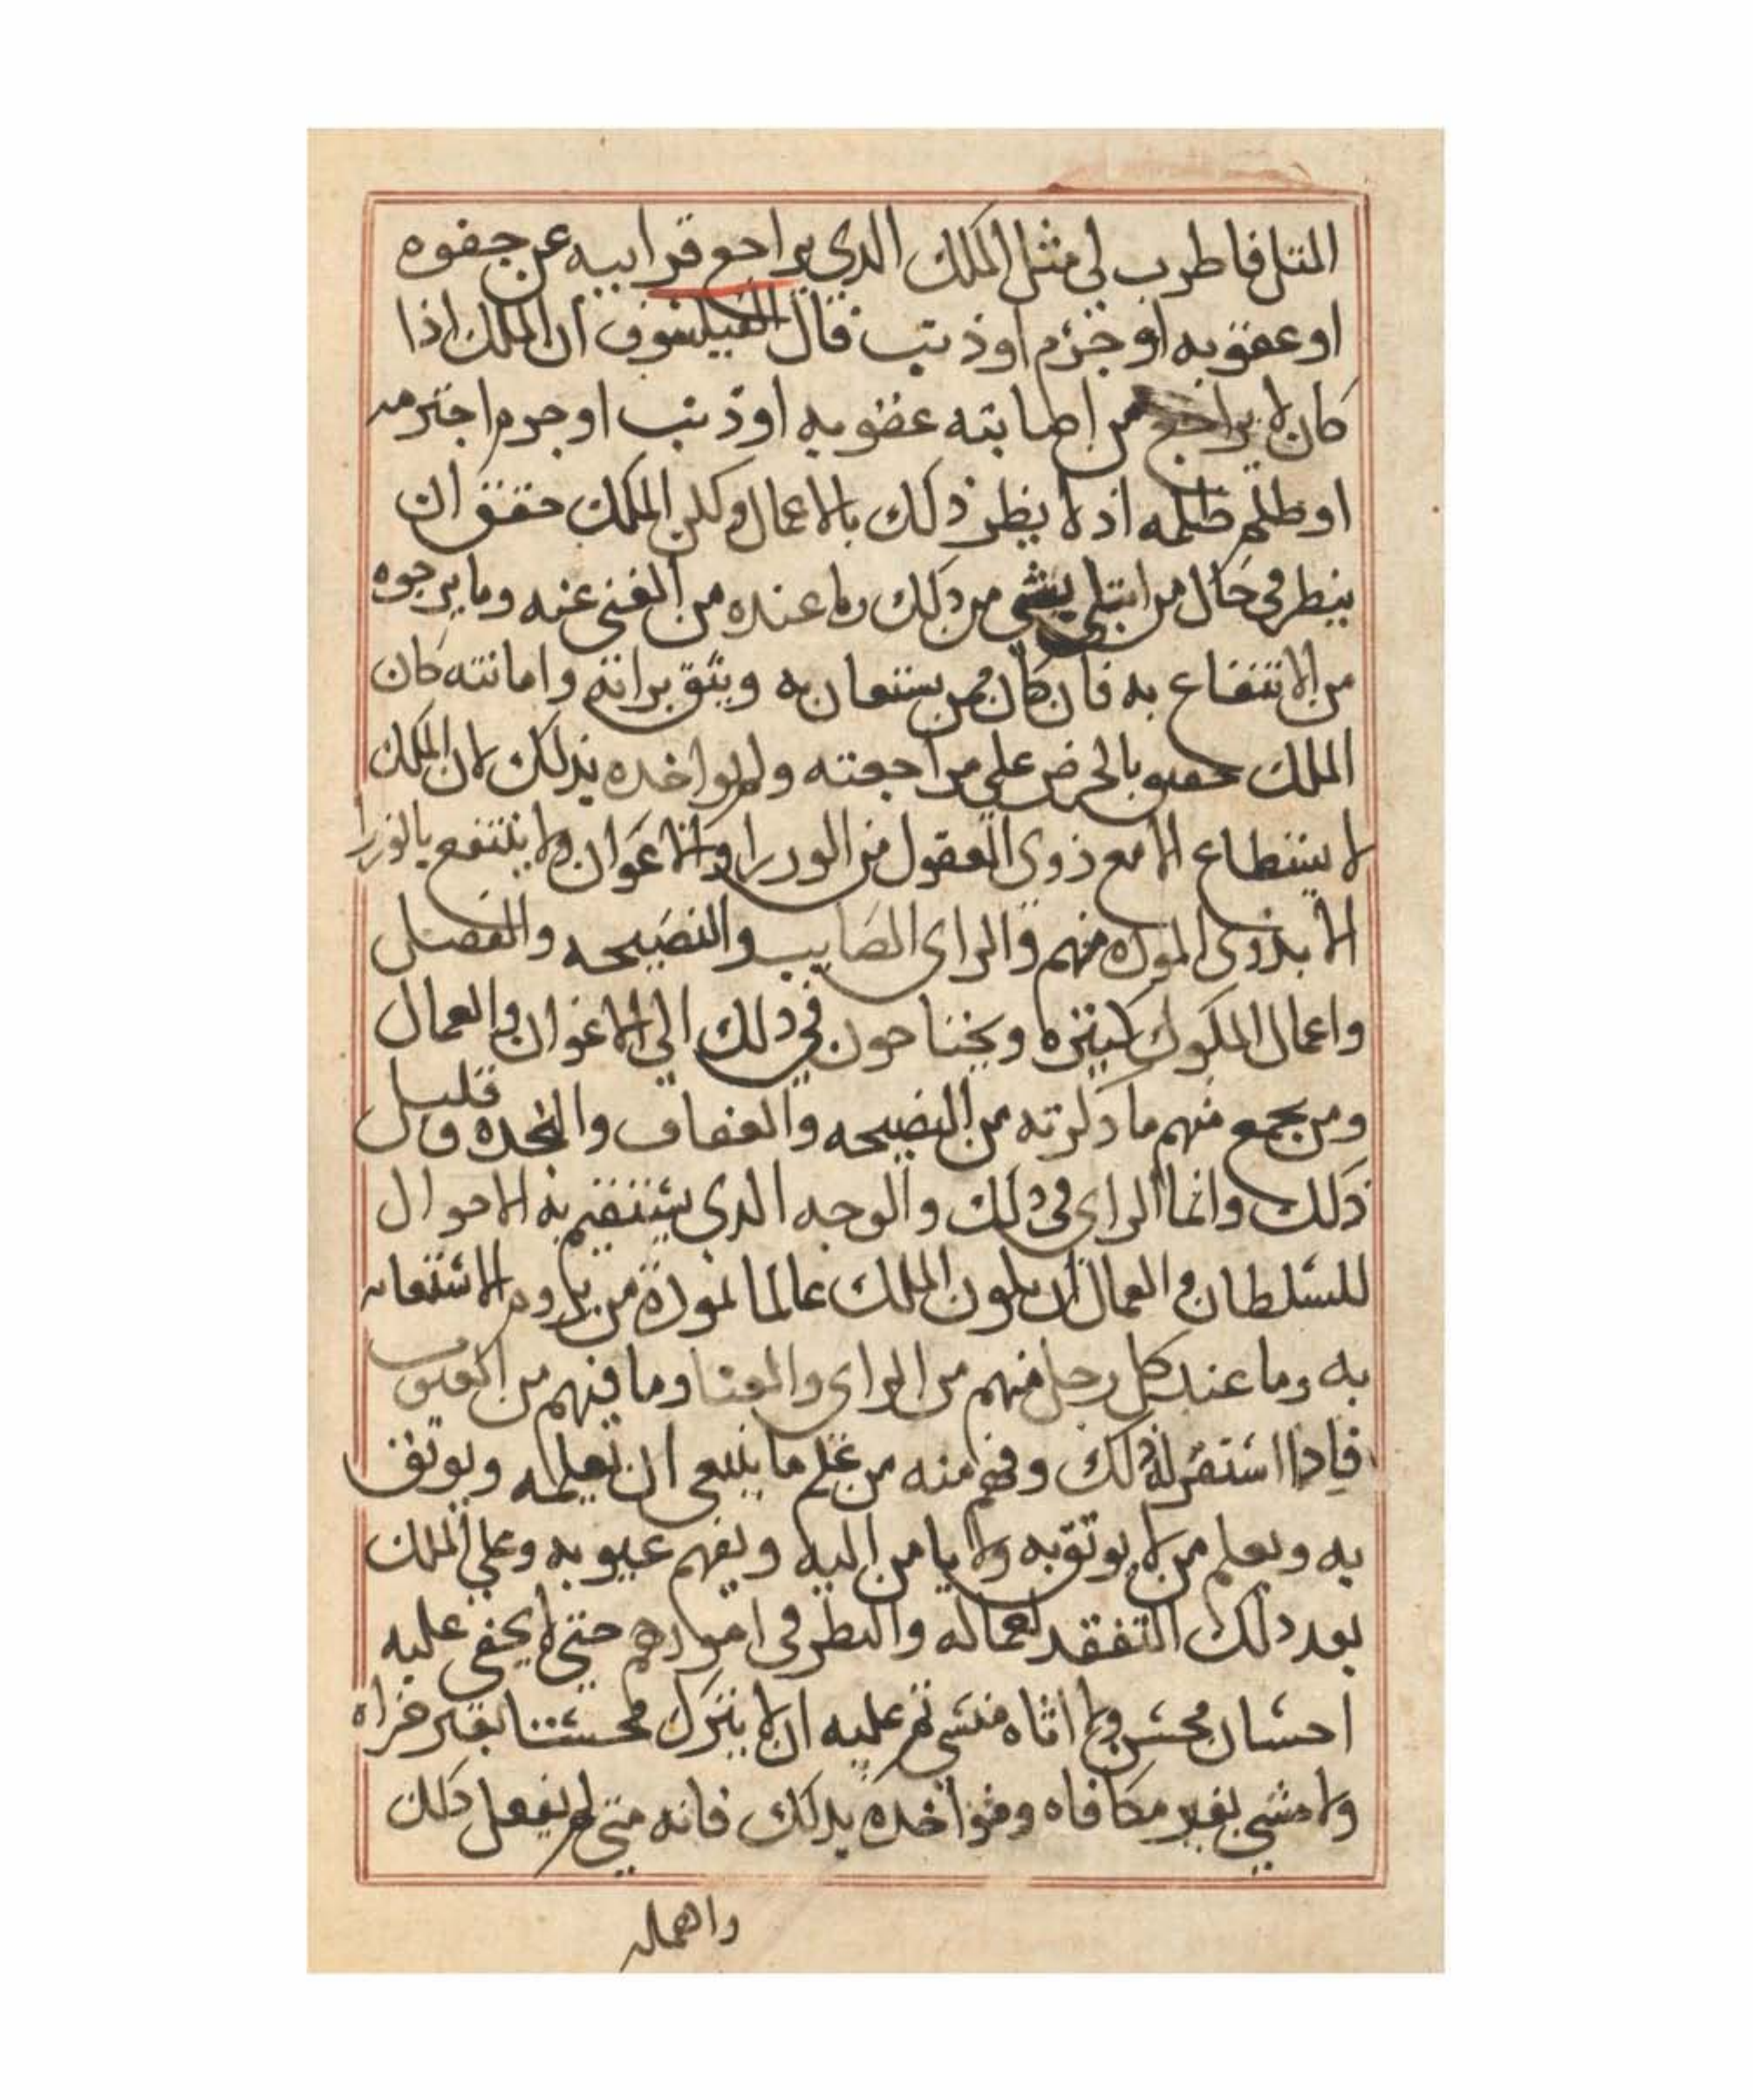 المثل فاطرب لي مثل الملك الدي يراجع قرابيه عن جفوه
او عقوبه او جزم او ذنب قال الفيلسوف ان الملك اذا
كان لا يراجع من اصابته عقوبه او ذنب او جرم اجترمه
او ظلم ظلمه اذ لا يظر ذلك بالاعمال ولكن الملك حقق ان
ينطر في حال من ابتلي بشي من ذلك وما عنده من الغنى عنه وما يرجوه
من الانتفاع به فان كان ممن يستعان به ويثق برايه وامانته كان
الملك حقيق بالحرص علي مراجعته ولم يواخده بذلك لان الملك
لا يستطاع الا مع ذوي العقول من الوزرا والاعوان ولا ينتفع بالوزرا
الا بذوى الموده منهم والراى الصايب والنصيحه والفصل
واعمال الملوك كثيره ويحتاحون في ذلك الي الاعوان والعمال
ومن يجمع منهم ما دكرته من النصيحه والعفاف والنجده قليل
ذلك وانما الراي في ذلك والوجه الدي يستقيم به الاحوال
للسلطان والعمال ان يكون الملك عالما بموده من يروم الاستعانه
به وما عند كل رجل منهم من الراي والغنا وما فيهم من العيوب
فادا استقر له ذلك وفهم منه من علم ما ينبغي ان يعلمه ويوثق
به ويعلم من لا يوثق به ولا يامن اليه ويفهم عيوبه وعلي الملك
بعد دلك التفقد لعماله والنظر في امورهم حتى لا يخفي عليه
احسان محسن ولا اثاه مسي ثم عليه ان لا يترك محسنا بغير جزاه
ولا مسي بغير مكافاه ومواخده بدلك فانه متي لم يفعل ذلك
واهمله